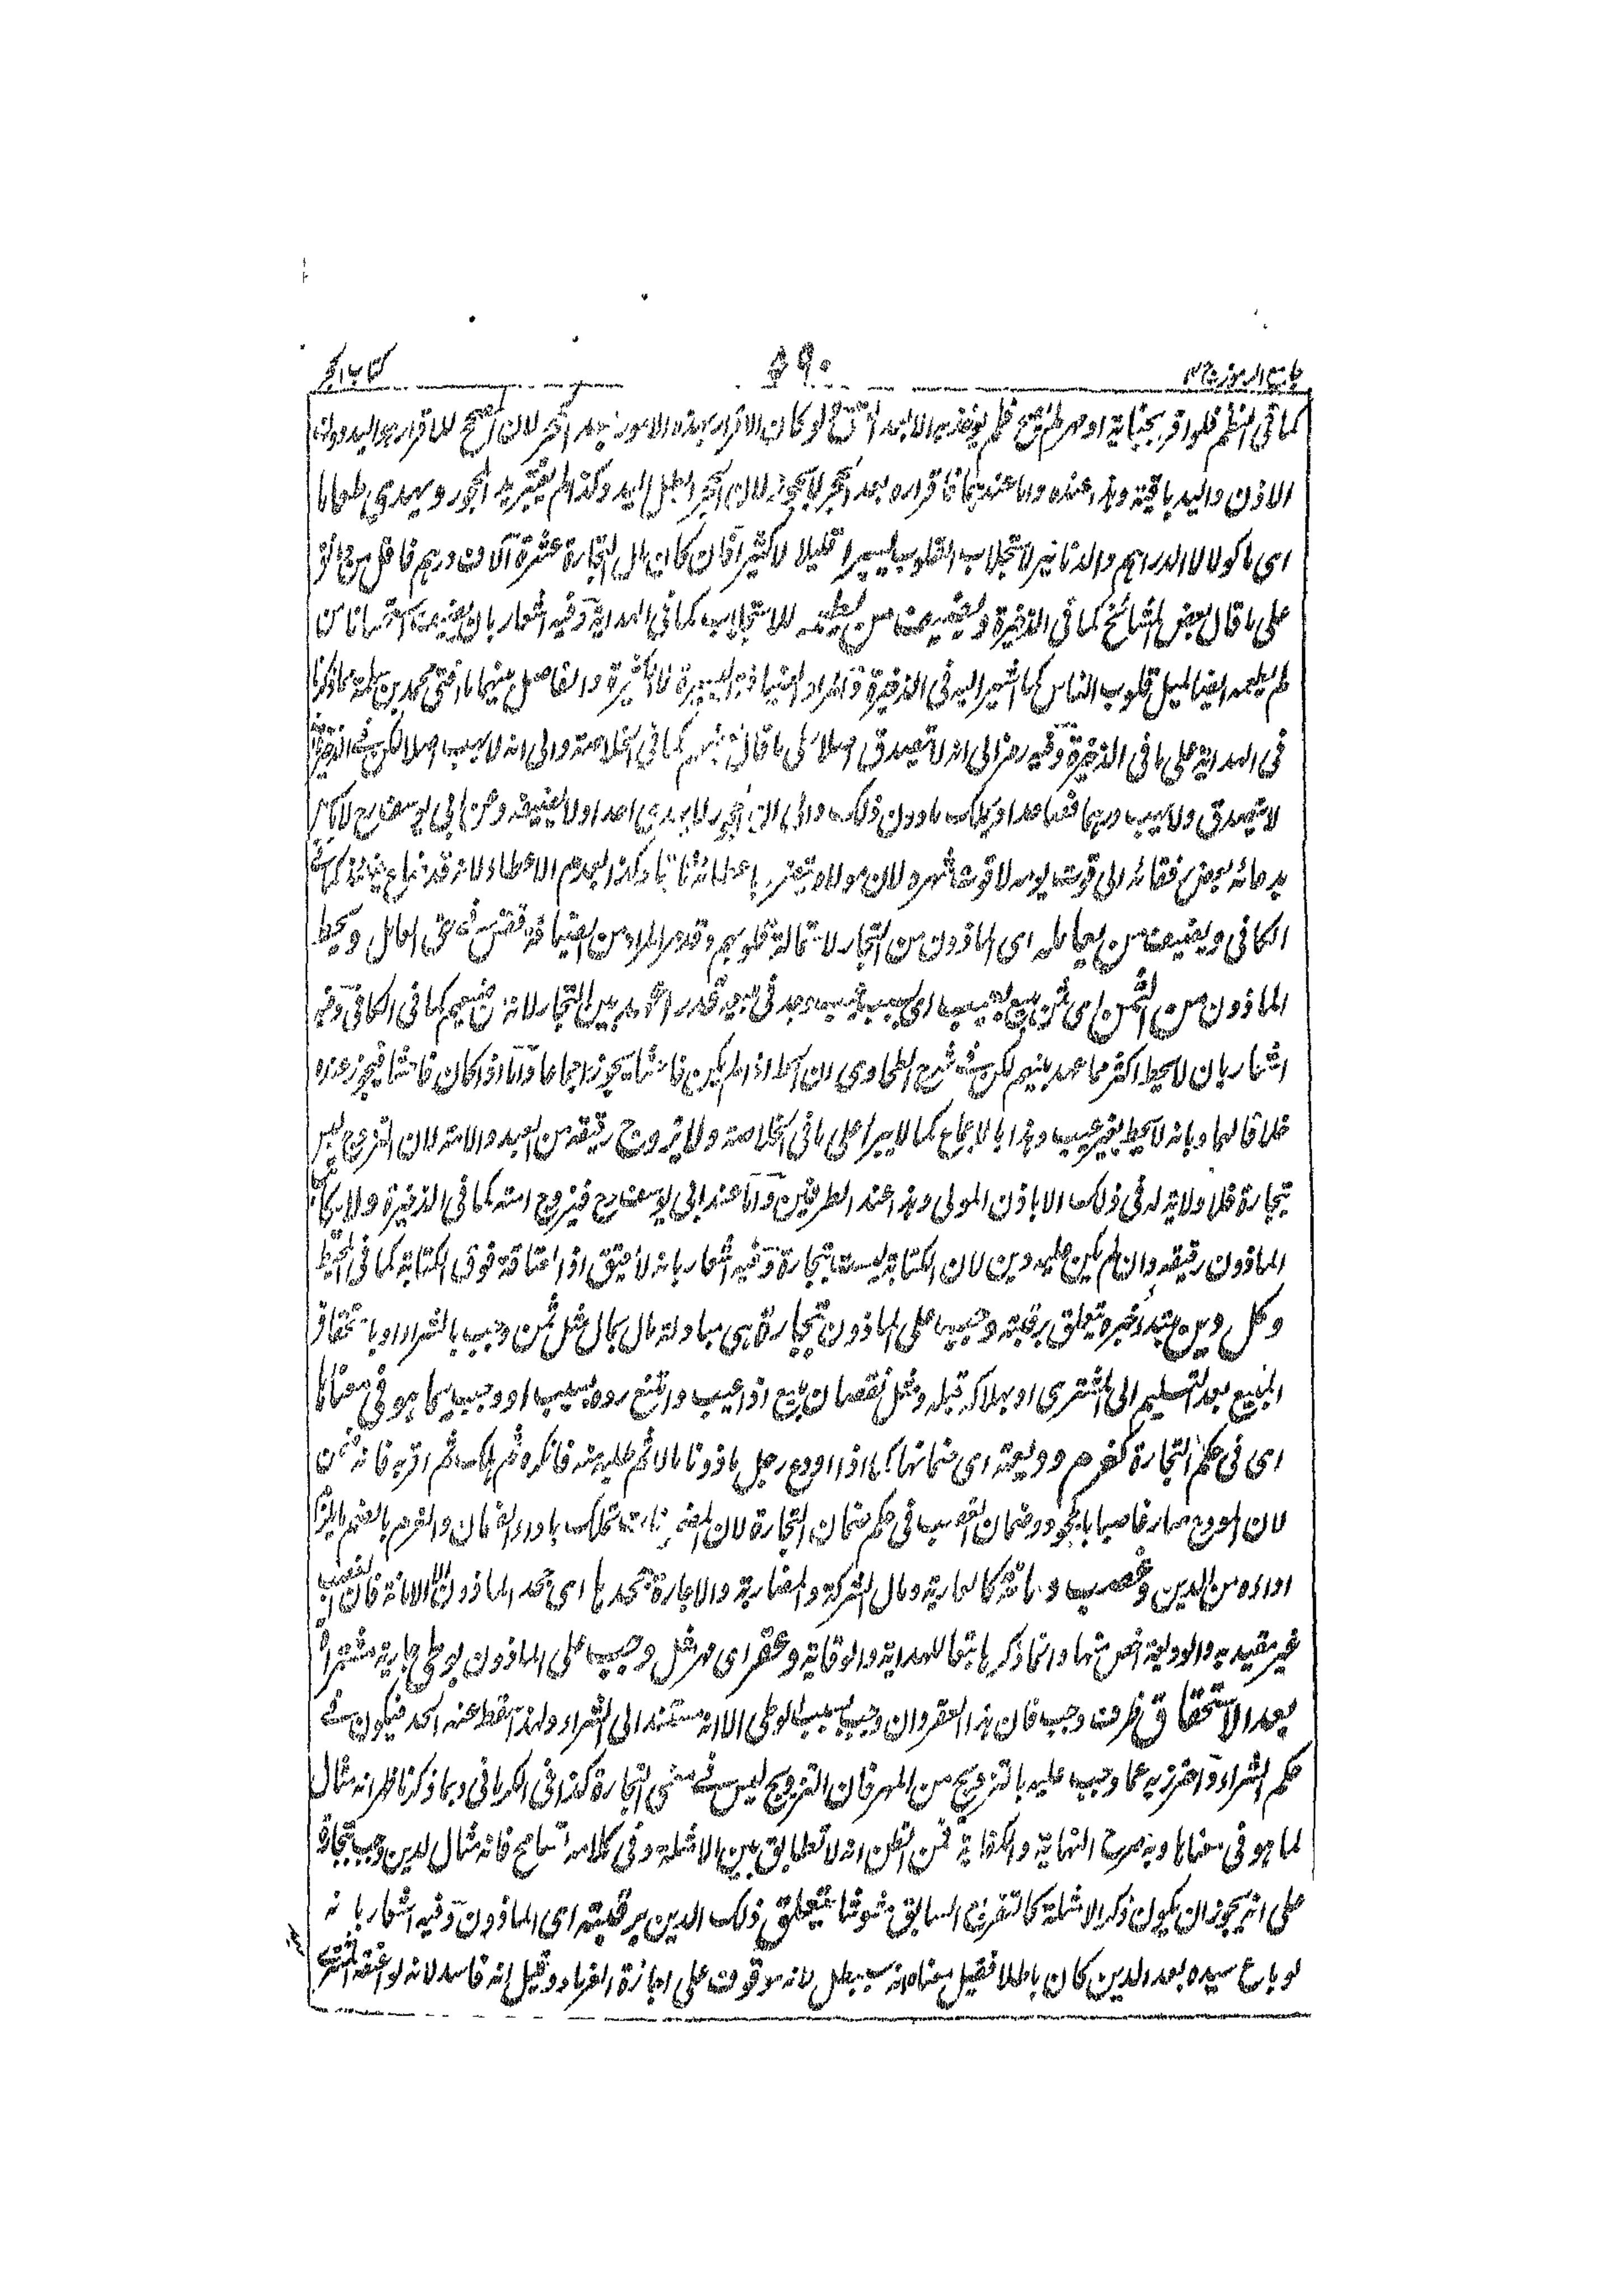 جامع الرموز ج ٢ ٥٩٠ كتاب الحجر
كما فى النظم فلو اقر بجناية او مهر لم يصح فلم يؤخذ به الا بعد العتق ولو كان الاقرار بهذه الامور بعد الحجر لان المصحح للاقرار هو اليد دون
الاذن واليد باقية وهذا عنده واما عندهما فاقراره بعد الحجر لا يجوز لان الحجر ابطل اليد وكذا لم يعتبر يد المحجور ويهدى طعاما
اى ماكولا لا الدراهم والدنانير لاستجلاب القلوب يسيرا قليلا لا كثيرا فان كان مال التجارة عشرة آلاف درهم فاقل من
على ما قال بعض المشائخ كما فى الذخيرة ويضيف من يطعمه للاستجلاب كما فى الهداية وفيه اشعار بان يضيف استحسانا من
لم يطعمه ايضا لميل قلوب الناس كما اشير اليه فى الذخيرة والمراد الضيافة اليسيرة لا الكثيرة والفاصل بينهما ما افتى محمد بن سلمة مما ذكرنا
فى الهداية على ما فى الذخيرة وفيه رمز الى انه لا تصدق اصلا على ما قال بعضهم كما فى الخلاصة والى انه لا يهب اصلا لكن فى الذخيرة
لا يتصدق ولا يهب درهما فصاعدا ويملك ما دون ذلك والى ان المحجور لا يهدى احدا ولا يضيفه وعن ابى يوسف رح لا باس
بدعائه بعض رفقائه الى قوت يومه لا قوت شهره لان مولاه يتضرر باعطائه ثانيا وكذا بعدم الاعطاء لانه قد ضاع
الكافى ويضيف من يعامله اى الماذون من التجار لاستمالة قلوبهم وقد مر المراد من الضيافة فى حق العامل ويحط
الماذون من الثمن اى ثمن مبيع بعيب اى بسبب عيب وجد فى مبيعه قدرا عهد بين التجار لانه من صنيعهم كما فى الكافى وفيه
اشعار بان لا يحط اكثر مما عهد بينهم لكن فى شرح الطحاوى ان الحط اذا لم يكن فاحشا يجوز اجماعا واما اذا كان فاحشا فيجوز عنده
خلافا لهما وبانه لا يحط بغير عيب وهذا بالاجماع كما لا يبرأ على ما فى الخلاصة ولا يزوج رقيقه من العبد والامة لان التزوج ليس
بتجارة فلا ولاية له فى ذلك الا باذن المولى وهذا عند الطرفين واما عند ابى يوسف رح فيزوج امته كما فى الذخيرة ولا يكاتب
الماذون رقيقه وان لم يكن عليه دين لان الكتابة ليست بتجارة وفيه اشعار بانه لا يعتق اذ اعتاقه فوق الكتابة كما فى المحيط
وكل دين مبتدأ خبره يتعلق برقبته وجب على الماذون بتجارة هى مبادلة مال بمال مثل ثمن وجب بالشراء او باستحقاق
المبيع بعد التسليم الى المشترى او بهلاكه قبله ومثل نقصان مبيع اذا عيب وامتنع رده بعيب او وجب بما هو فى معناها
اى فى حكم التجارة كغرم وديعة اى ضمانها كما اذا اودع رجل ماذونا مالا ثم طلبه منه فانكره ثم هلك ثم اقر به فانه ضمن
لان المودع صار غاصبا بالجحود وضمان الغصب فى حكم ضمان التجارة لان المضمونات تملك باداء الضمان والغرم بالضم ما يلزم
اداؤه من الدين وغصب وامانة كالعارية ومال الشركة والمضاربة والاجارة جحدها اى جحد الماذون تلك الامانة فان الغصب
غير مقيد به والوديعة اخص منها وانما ذكرها تبعا للهداية والوقاية وعقر اى مهر مثل وجب على الماذون بوطى جارية مشتراة
بعد الاستحقاق ظرف وجب فان هذا العقر وان وجب بسبب الوطى الا انه مستند الى الشراء ولهذا سقط عنه الحد فيكون فى
حكم الشراء واحترز به عما وجب عليه بالتزويج من المهر فان التزويج ليس فى معنى التجارة كذا فى الكرمانى وبما ذكرنا ظهر انه مثال
لما هو فى معناها وبه صرح النهاية والكفاية فمن الظن انه لا تطابق بين الامثلة وفى كلامه تسامح فانه مثال لدين وجب بتجارة
على انه يجوز ان يكون ذكر الامثلة كالتفريع السابق مشوشا يتعلق ذلك الدين برقبته اى الماذون وفيه اشعار بانه
لو باع سيده بعد الدين كان باطلا فقيل معناه انه سيبطل لانه موقوف على اجازة الغرماء وقيل انه فاسد لانه لو اعتقه المشترى